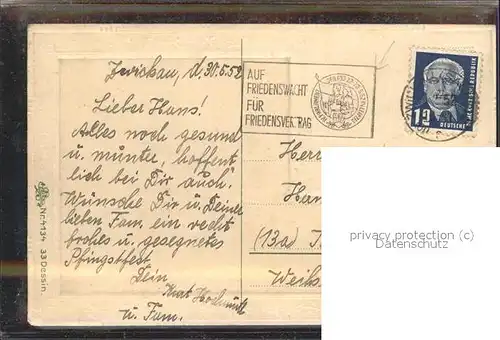 Zwickau, d. 30.5.52
Lieber Hans!
Alles noch gesund
u. munter, hoffent
lich bei Dir auch.
Wünsche Dir u. Deiner
lieben Fam. ein recht
frohes u. gesegnetes
Pfingstfest
Dein
Kurt
u. Fam.
Nr. 4134 33 Dessin
AUF
FRIEDENSWACHT
FÜR
FRIEDENSVERTRAG
12
DEUTSCHE
Herr
Han
(13a)
Weiß
privacy protection (c)
Datenschutz